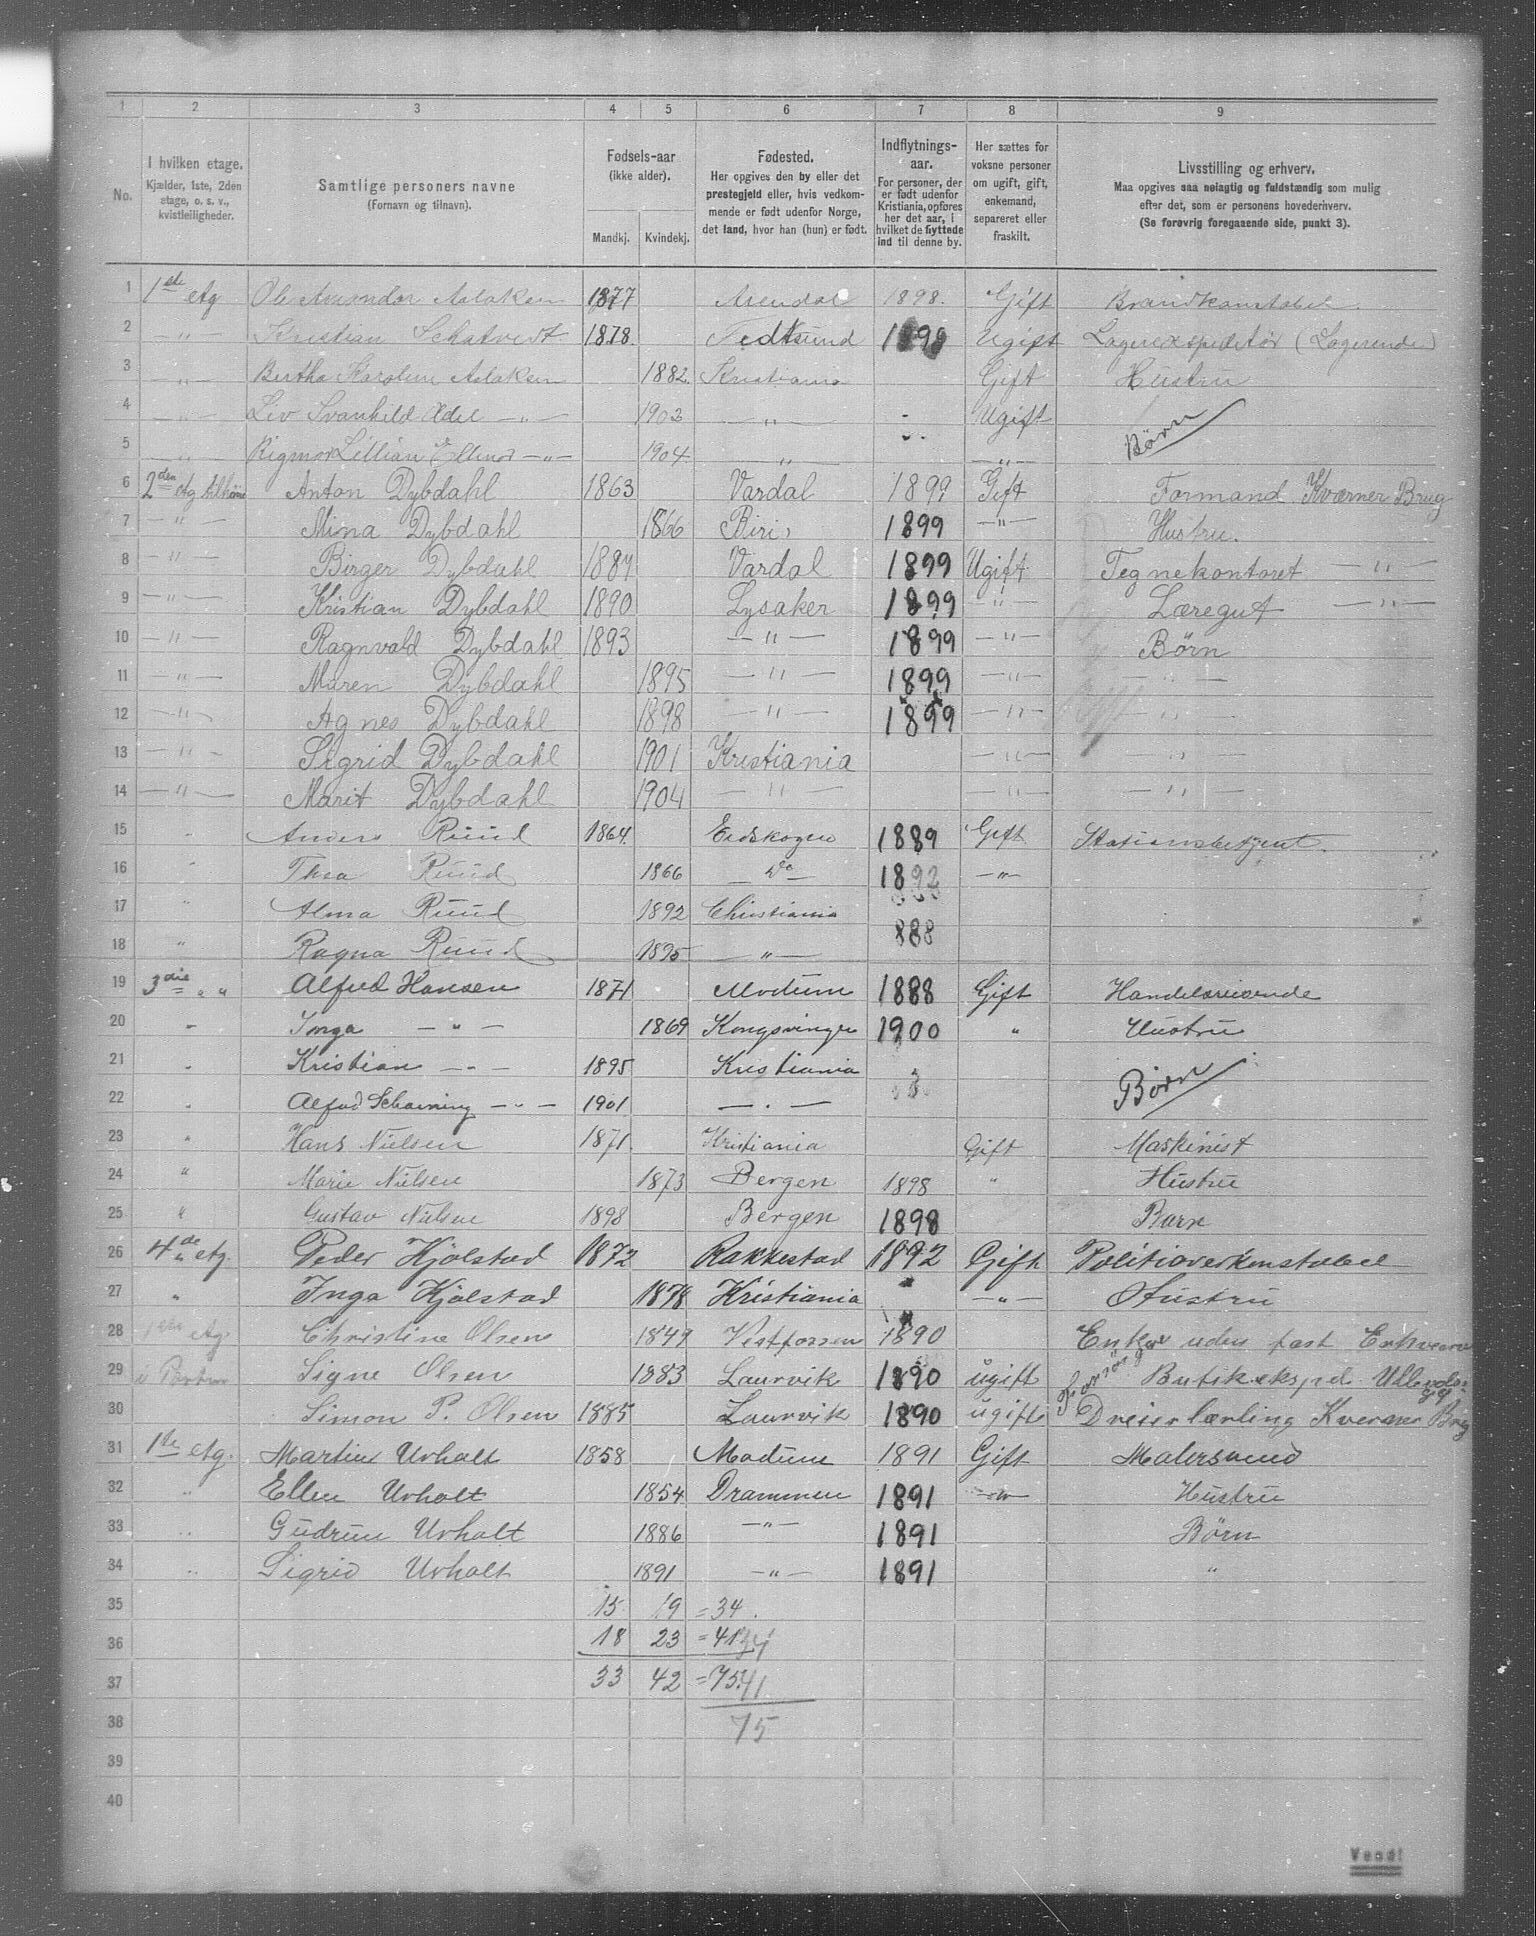 1 2 3 4 5 6 7 8 9
No.
I hvilken etage.
Kjælder, 1ste, 2den etage, o. s. v., kvistleiligheder.
Samtlige personers navne
(Fornavn og tilnavn).
Fødsels-aar
(ikke alder).
Mandkj. Kvindekj.
Fødested.
Her opgives den by eller det prestegjeld eller, hvis vedkommende er født udenfor Norge, det land, hvor han (hun) er født.
Indflytnings-aar.
For personer, der er født udenfor Kristiania, opføres her det aar, i hvilket de flyttede ind til denne by.
Her sættes for voksne personer om ugift, gift, enkemand, separeret eller fraskilt.
Livsstilling og erhverv.
Maa opgives saa nøiagtig og fuldstændig som mulig efter det, som er personens hovederhverv.
(Se forøvrig foregaaende side, punkt 3).
1 1ste etg Ole Amandar Aslaksen 1877 Arendal 1898. Gift Brandkonstabel.
2 — " — Kristian Schatvedt 1878. Fedtsund 1898 Ugift Lagerexpeditør (Lagerende)
3 — " — Bertha Karoline Aslaksen 1882. Kristiania Gift Hustru
4 — " — Liv Svanhild Edel — " — 1902 — " — Ugift Børn
5 — " — Rigmor Lillian Ellinor — " — 1904 — " — — " —
6 2den etg Anton Dybdahl 1863 Vardal 1899 Gift Formand Kværner Brug
7 — " — Mina Dybdahl 1866 Biri 1899 — " — Hustru.
8 — " — Birger Dybdahl 1887 Vardal 1899 Ugift Tegnekontoret — " —
9 — " — Kristian Dybdahl 1890 Lysaker 1899 — " — Læregut — " —
10 — " — Ragnvald Dybdahl 1893 — " — 1899 — " — Børn
11 — " — Maren Dybdahl 1895 — " — 1899 — " — — " —
12 — " — Agnes Dybdahl 1898 — " — 1899 — " — — " —
13 — " — Sigrid Dybdahl 1901 Kristiania — " — "
14 — " — Marit Dybdahl 1904 — " — — " — — " —
15 " Anders Ruud 1864. Eidskogen 1889 Gift Stationsbetjent.
16 " Thea Ruud 1866 — Do — 1892 — " —
17 " Alma Ruud 1892 Christiania
18 " Ragna Ruud 1895 — " — 888
19 3die " " Alfred Hansen 1871 Modum 1888 Gift Handelsreisende
20 " Inga — " — 1869 Kongsvinger 1900 " Hustru
21 " Kristian — " — 1895 Kristiania Børn
22 " Alfred Scharning — " — 1901 — " —
23 " Hans Nielsen 1871. Kristiania Gift Maskinist
24 " Marie Nielsen 1873 Bergen 1898 " Hustru
25 " Gustav Nielsen 1898 Bergen 1898 Barn
26 4de etg. Peder Hjølstad 1872 Rakkestad 1892 Gift Politioverkonstabel
27 " Inga Hjølstad 1878 Kristiania — " — Hustru
28 1ste etg. Christine Olsen 1849 Vestfossen 1890 Enke uden fast Erhverv
29 Signe Olsen 1883 Laurvik 1890 ugift Butikekspd. Ullevolsvg
30 Simon P. Olsen 1885 Laurvik 1890 ugift Dreierlærling Kverner Brug
31 1ste etg. Martin Urholt 1858 Modum 1891 Gift Malersvend
32 " Ellen Urholt 1854 Drammen 1891 — " — Hustru
33 " Gudrun Urholt 1886 — " — 1891 Børn
34 " Sigrid Urholt 1891 — " — 1891 "
35 15 19 = 34.
36 18 23 = 41 34
37 33 42 = 75. 41
38 75
39
40
Vend!